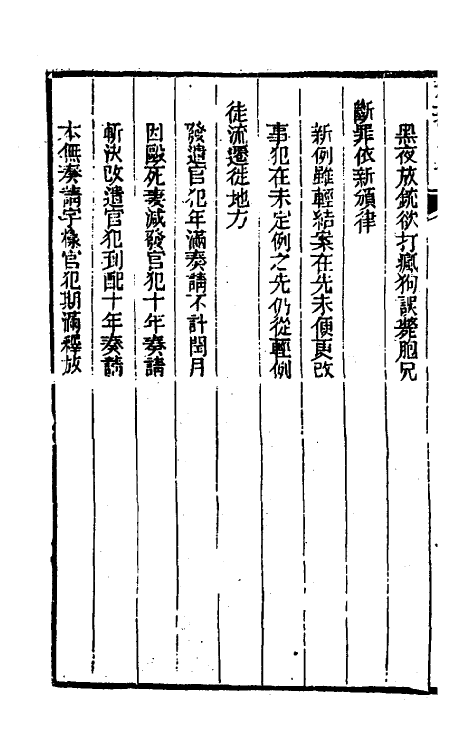 黑夜放銃欲打瘋狗誤斃胞兄
斷罪依新頒律
新例雖輕結案在先未便更改
事犯在未定例之先仍從輕例
徒流遷徙地方
發遣官犯年滿奏請不計閏月
因毆死妻減發官犯十年奏請
斬決改遣官犯到配十年奏請
本無奏請字樣官犯期滿釋放